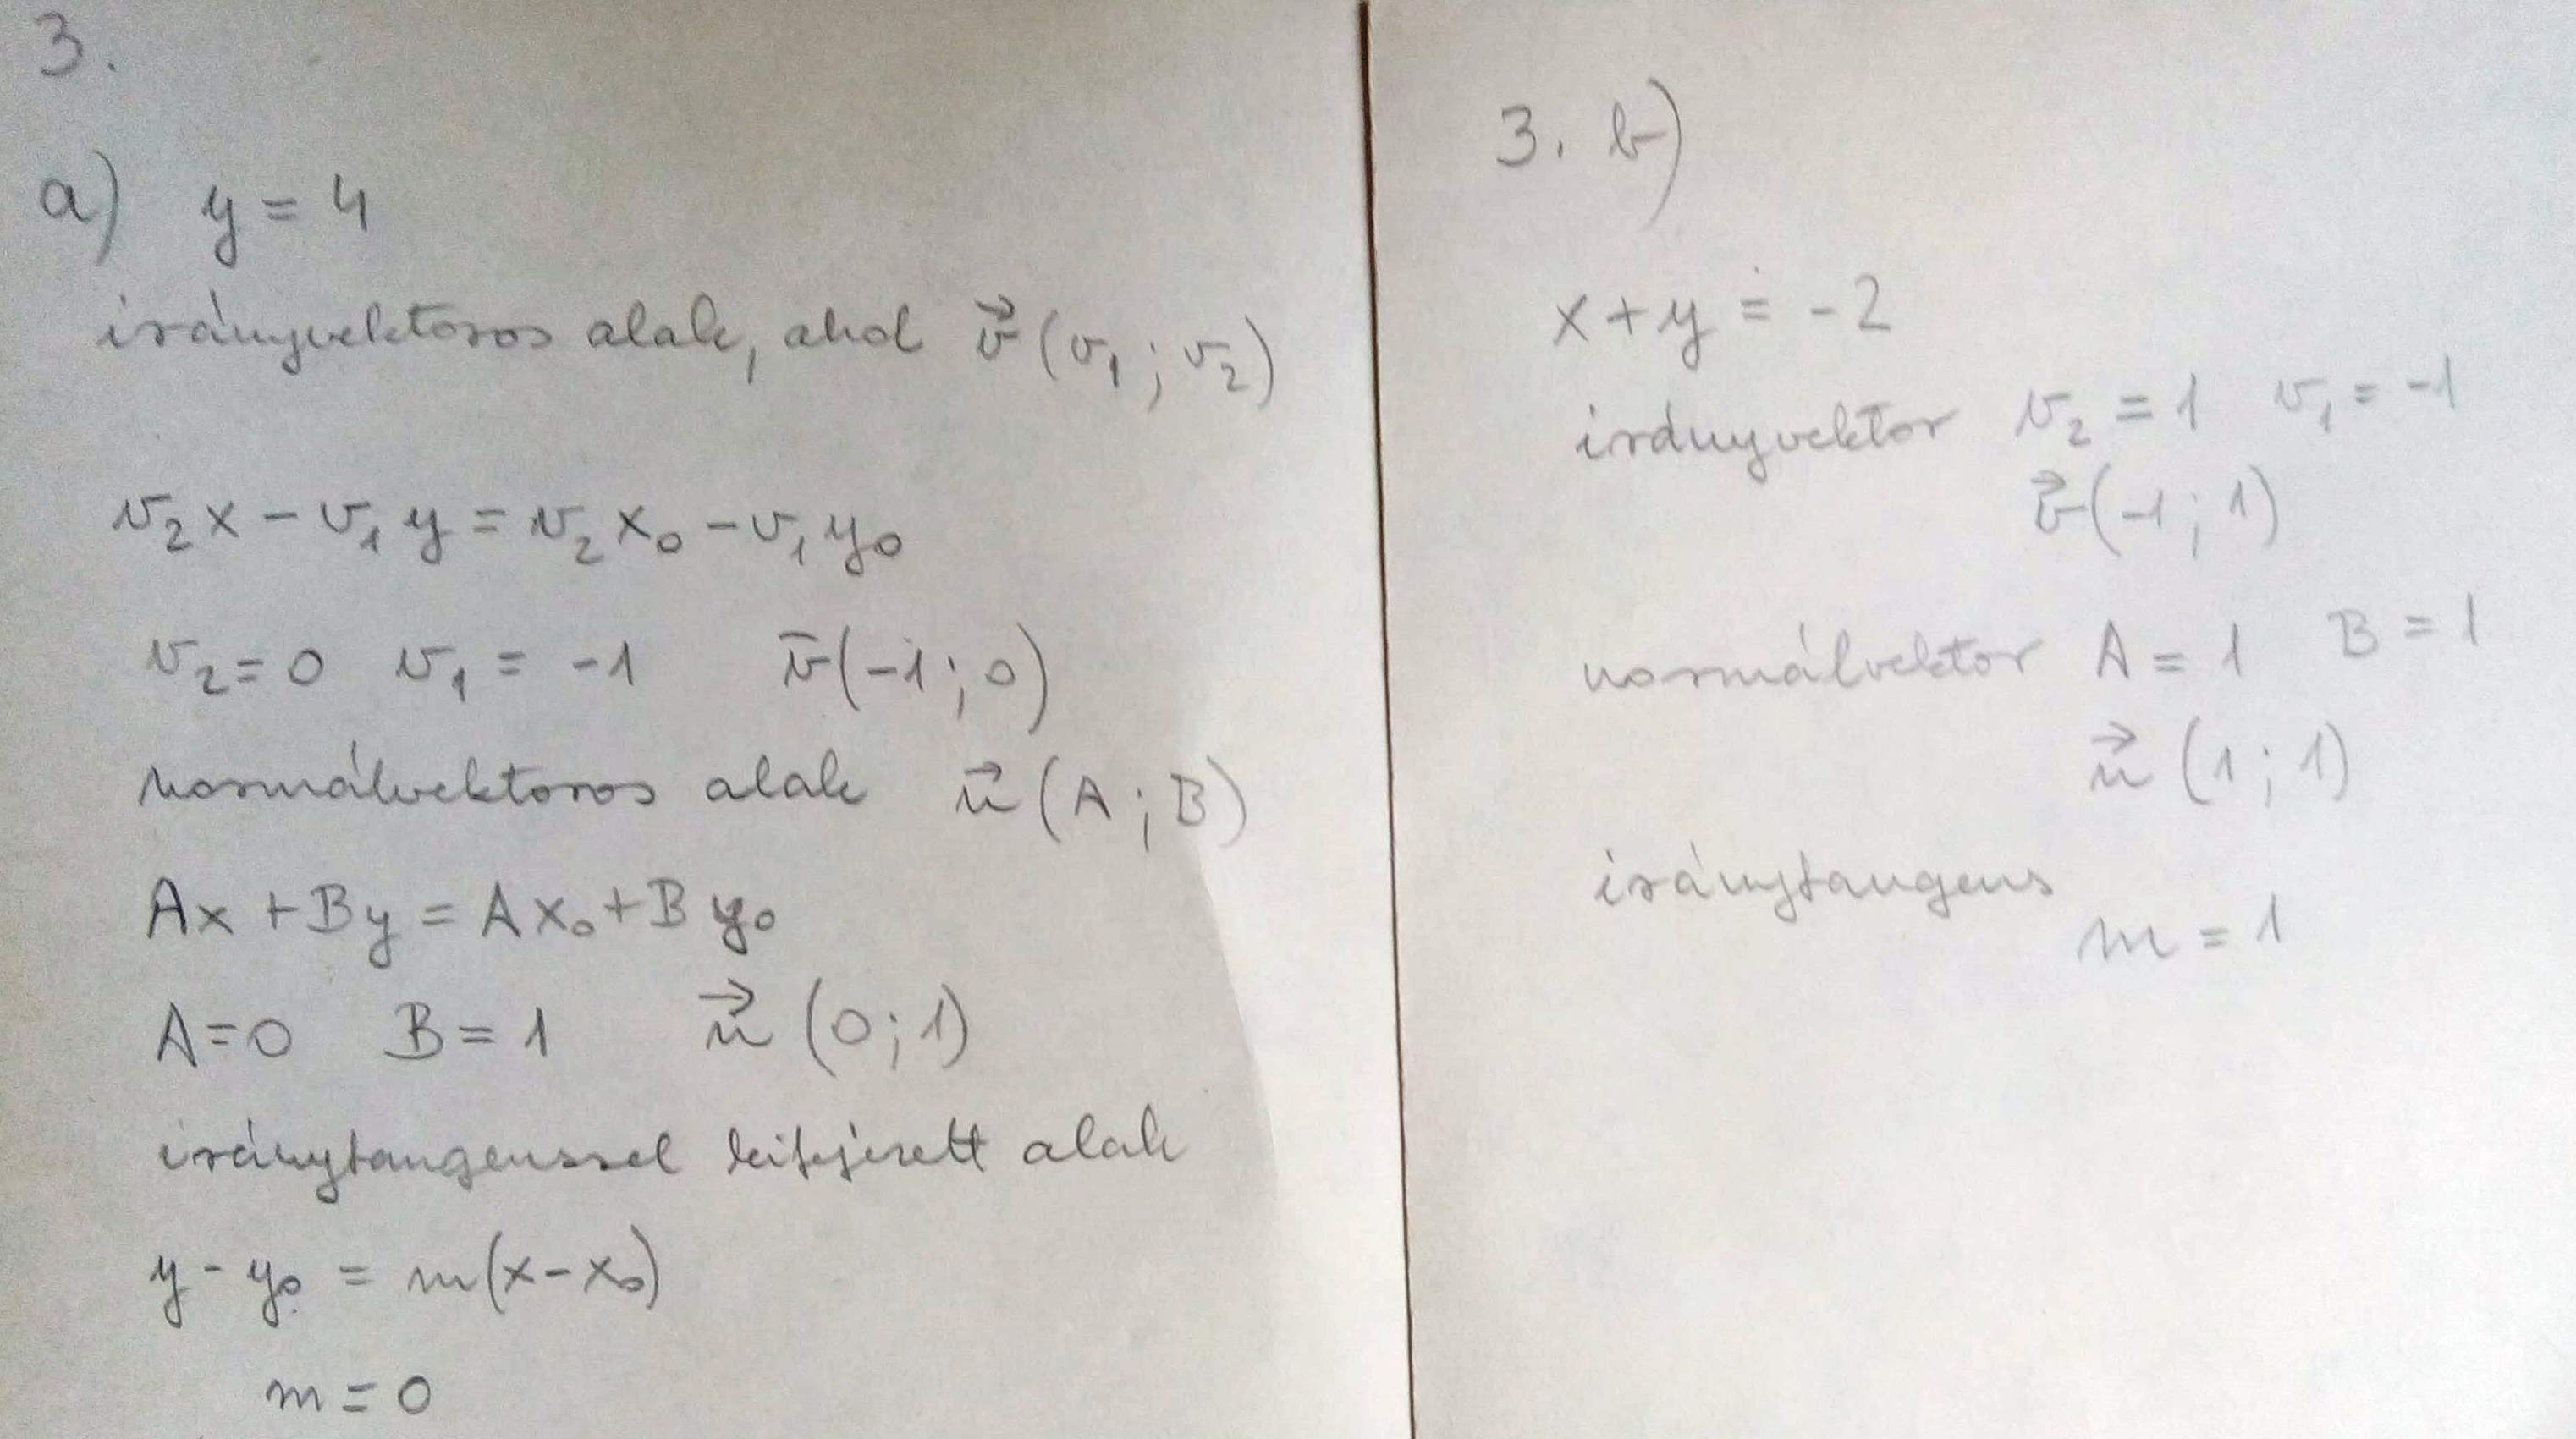 3.
a) y = 4
irányvektoros alak, ahol v⃗ (v₁ ; v₂)
v₂x - v₁y = v₂x₀ - v₁y₀
v₂ = 0 v₁ = -1 v̄(-1 ; 0)
normálvektoros alak n⃗ (A ; B)
Ax + By = Ax₀ + By₀
A = 0 B = 1 n⃗ (0 ; 1)
iránytangenssel kifejezett alak
y - y₀ = m(x - x₀)
m = 0
3. b)
x + y = -2
irányvektor v₂ = 1 v₁ = -1
v⃗(-1 ; 1)
normálvektor A = 1 B = 1
n⃗ (1 ; 1)
iránytangens
m = 1